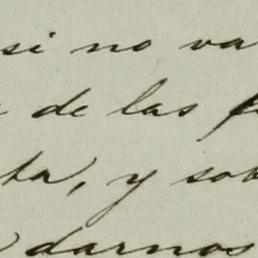 si no va
de las
ta, y so
darnos